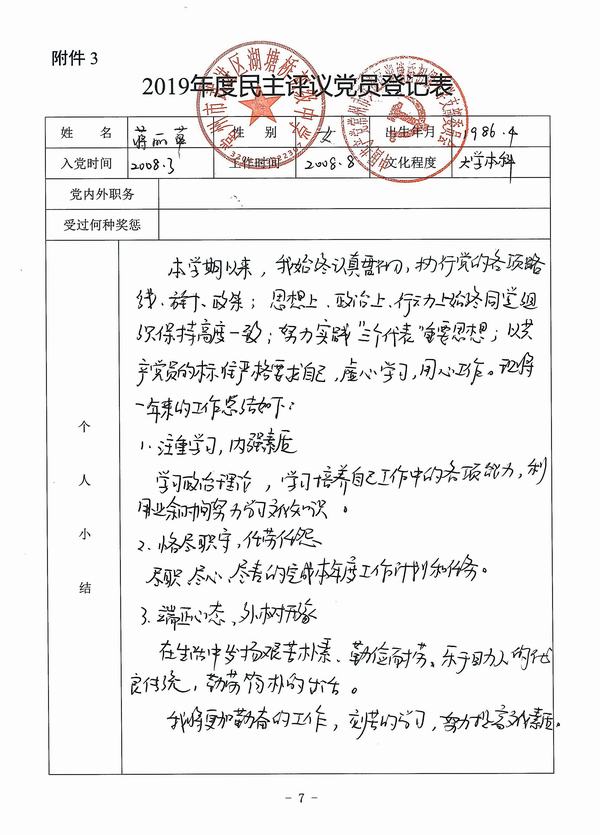 附件 3
2019年度民主评议党员登记表
姓 名 蒋丽萍 性 别 女 出生年月 1986.4
入党时间 2008.3 工作时间 2008.8 文化程度 大学本科
党内外职务
受过何种奖惩
个人小结
本学期以来，我始终认真贯彻，执行党的各项路
线、方针、政策；思想上、政治上、行动上始终同党组
织保持高度一致；努力实践“三个代表”重要思想；以共
产党员的标准严格要求自己，虚心学习，用心工作。现将
一年来的工作总结如下：
1. 注重学习，内强素质
学习政治理论，学习培养自己工作中的各项能力，利
用业余时间努力学习文化知识。
2. 恪尽职守，任劳任怨
尽职、尽心、尽责的完成本年度工作计划和任务。
3. 端正心态，外树形象
在生活中发扬艰苦朴素、勤俭耐劳、乐于助人的优
良传统，勤劳简朴的生活。
我将更加勤奋的工作，刻苦的学习，努力提高文化素质。
- 7 -